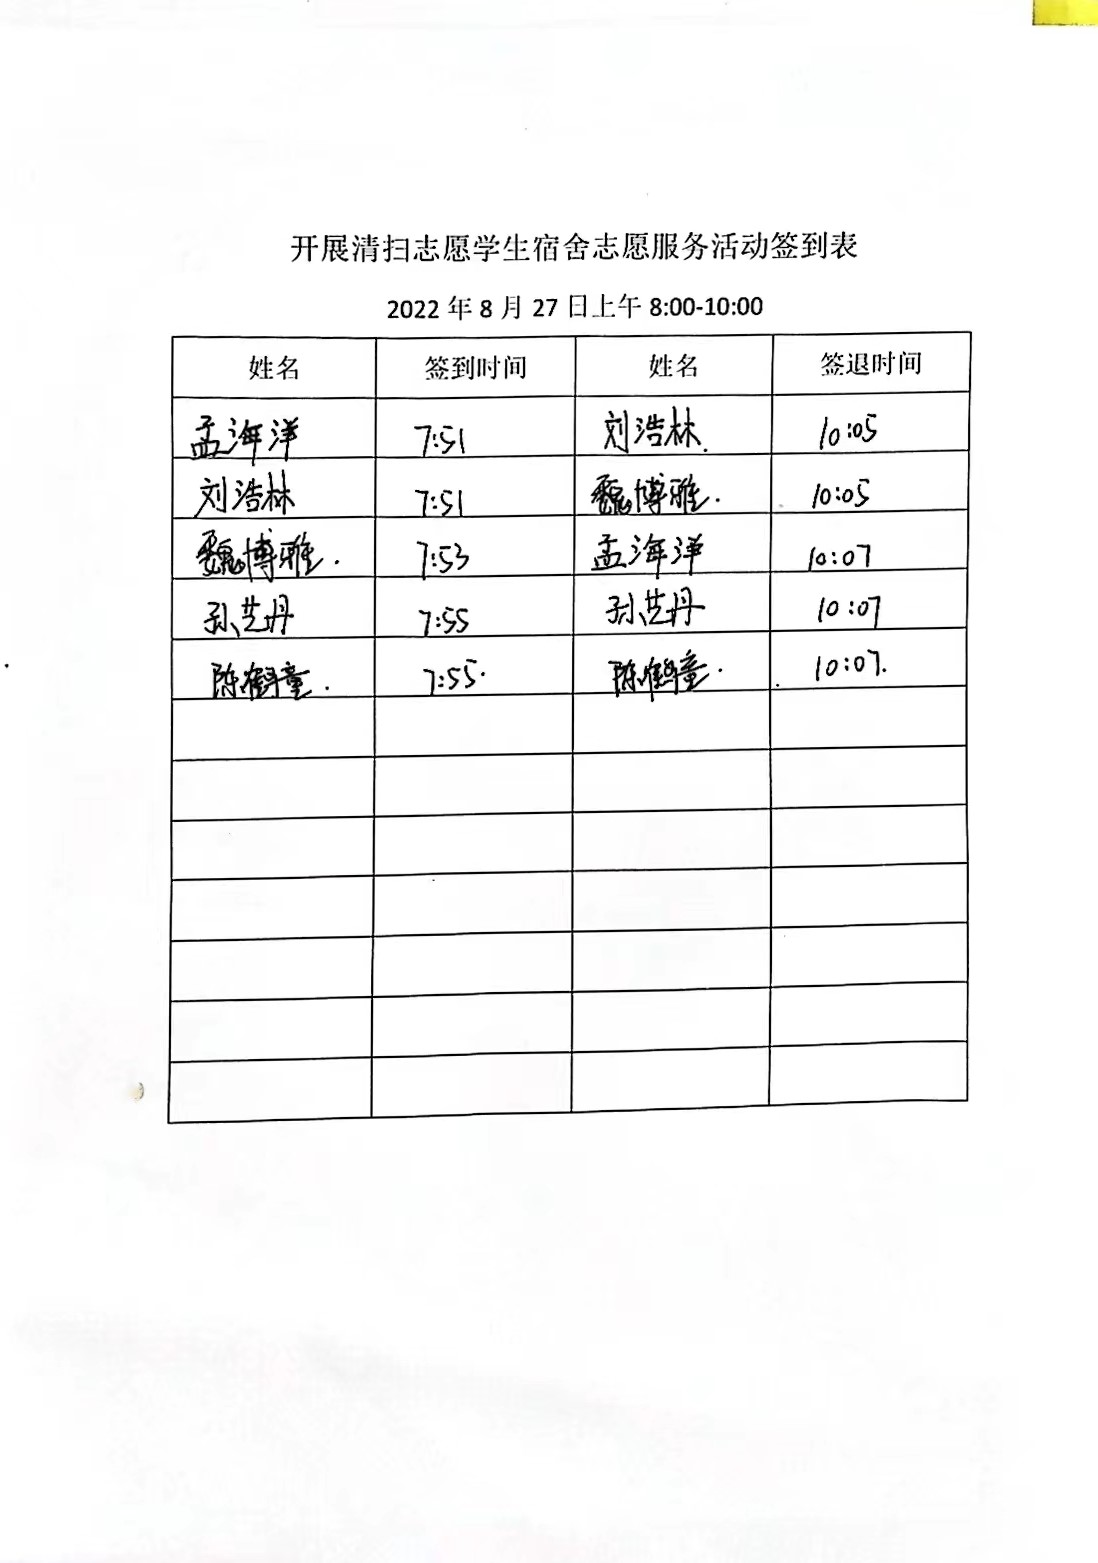 开展清扫志愿学生宿舍志愿服务活动签到表
2022 年 8 月 27 日上午 8:00-10:00
姓名 签到时间 姓名 签退时间
孟海洋 7:51 刘浩林. 10:05
刘浩林 7:51 魏博雅. 10:05
魏博雅. 7:53 孟海洋 10:07
孙艺丹 7:55 孙艺丹 10:07
陈鹤童. 7:55. 陈鹤童. 10:07.